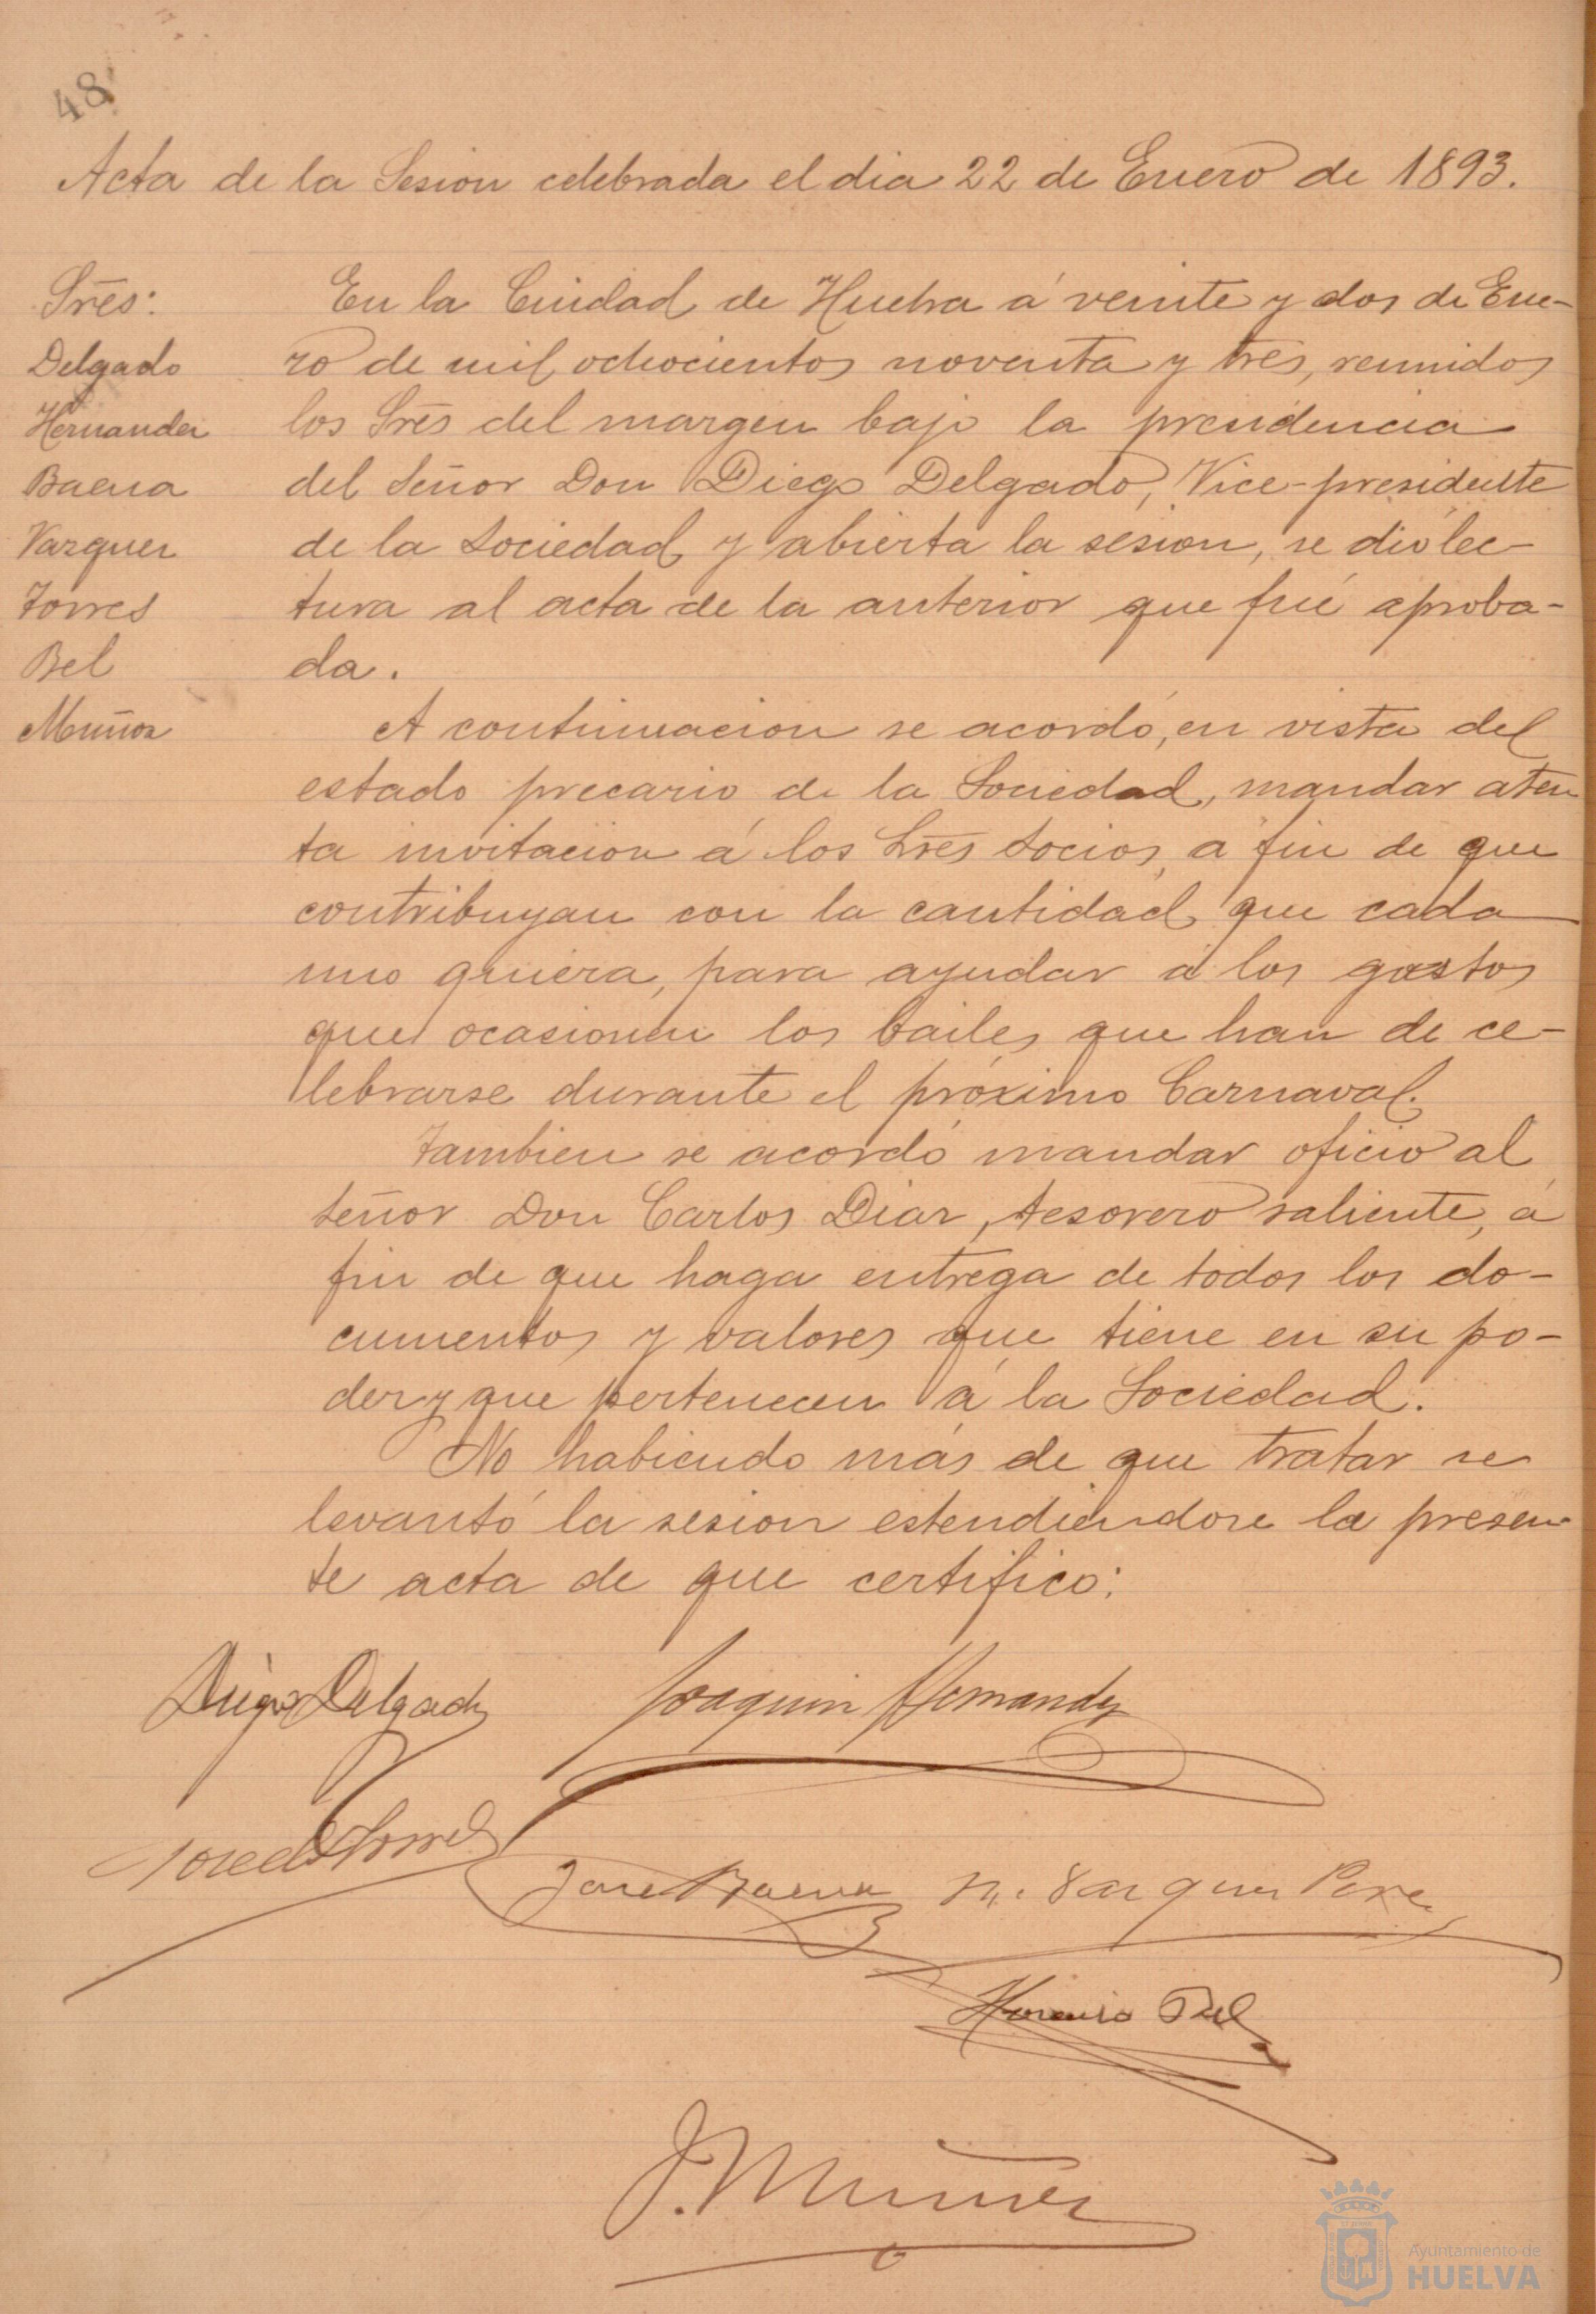 48
Acta de la Sesion celebrada el dia 22 de Enero de 1893.
Sres:
Delgado
Hernandez
Baena
Vazquez
Torres
Bel
Muñoz
En la Ciudad de Huelva á veinte y dos de Ene-
ro de mil ochocientos noventa y tres, reunidos
los Sres del margen bajo la presidencia
del Señor Don Diego Delgado, Vice-presidente
de la Sociedad y abierta la sesion, se dió lec-
tura al acta de la anterior que fué aproba-
da.
A continuacion se acordó, en vista del
estado precario de la Sociedad, mandar aten
ta invitacion á los Sres Socios, a fin de que
contribuyan con la cantidad que cada
uno quiera, para ayudar á los gastos
que ocasionen los bailes que han de ce-
lebrarse durante el próximo Carnaval.
Tambien se acordó mandar oficio al
Señor Don Carlos Diaz, tesorero saliente, á
fin de que haga entrega de todos los do-
cumentos y valores que tiene en su po-
der y que pertenecen á la Sociedad.
No habiendo más de que tratar se
levantó la sesion estendiendose la presen-
te acta de que certifico:
Diego Delgado
Joaquin Hernandez
José de Torres
José Baena
M. Vazquez Perez
Bel
J. Muñoz
Ayuntamiento de
HUELVA